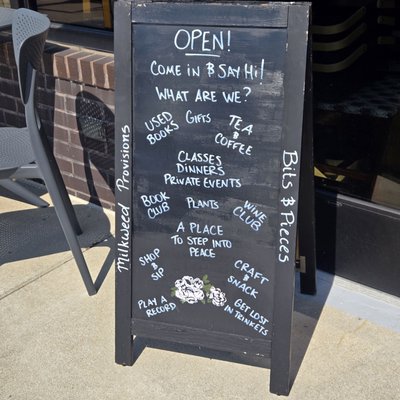 OPEN!
COME IN & SAY HI!
WHAT ARE WE?
USED
BOOKS
GIFTS
TEA
&
COFFEE
CLASSES
DINNERS
PRIVATE EVENTS
BOOK
CLUB
PLANTS
WINE
CLUB
A PLACE
TO STEP INTO
PEACE
SHOP
&
SIP
CRAFT
&
SNACK
PLAY A
RECORD
GET LOST
IN TRINKETS
Milkweed Provisions
Bits & Pieces